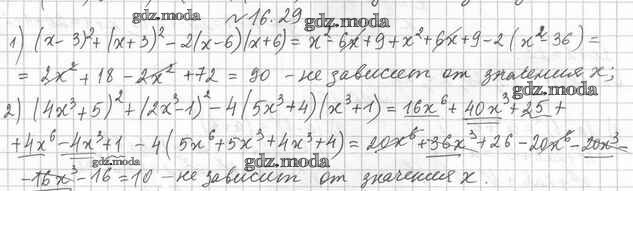 gdz.moda
№16.29
gdz.moda
1) (x-3)²+(x+3)²-2(x-6)(x+6)=x²-6x+9+x²+6x+9-2(x²-36)=
=2x²+18-2x²+72=90 - не зависит от значения x;
gdz.moda
2) (4x³+5)²+(2x³-1)²-4(5x³+4)(x³+1)=16x⁶+40x³+25+
+4x⁶-4x³+1-4(5x⁶+5x³+4x³+4)=20x⁶+36x³+26-20x⁶-20x³-
gdz.moda
gdz.moda
-16x³-16=10 - не зависит от значения x.